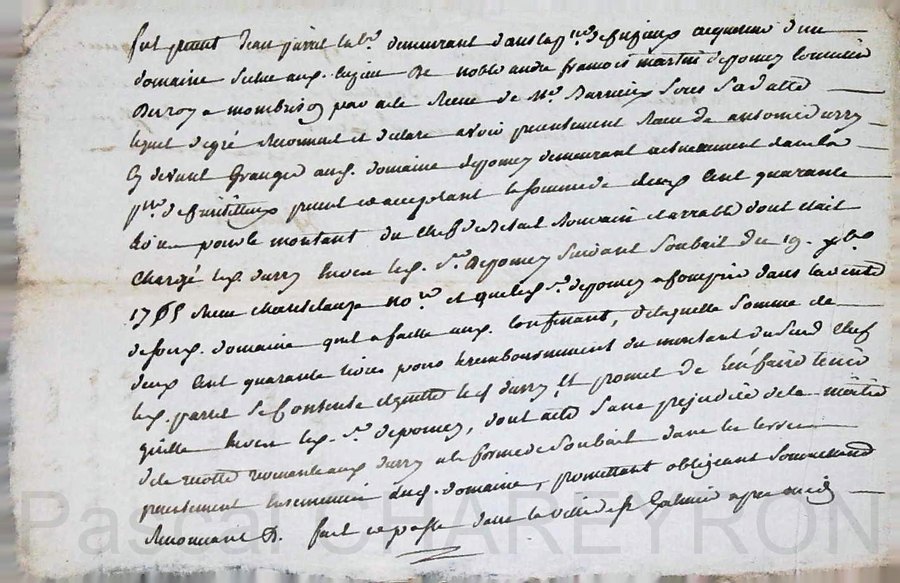 fut present Jean parret lab.r demeurant dans la p.sse d acquereur d'un
domaine scitue aux de noble andre francois martin depomey conseiller
Du roy a montbrison par acte Receu de M.e Barrieu sous sa datte
lequel de gré Reconnut et declare avoir presentement Receu de antoine durry
Cy devant Granger aud. domaine depomey demeurant actuellement dans la
p.sse de present et acceptant la somme de deux Cent quarante
livre pour le montant du Chef de Betail et arrable dont était
Chargé led. durry Envers led. S.r Depomey suivant Soubail du 19. x.bre
1765 Receu no.re et que led. S.r depomey a Compris dans la vente
de sond. domaine qu'il a faite aud. Confessant, de laquelle somme de
deux Cent quarante livres pour le remboursement du montant dud. Chef
led. parret se Contente et quitte led. durry Et promet de l'En faire tenir
quitte Envers led. S.r depomey, dont acte sans prejudice de la moitié
de la Recolte Revenante aud. durry a la forme de Soubail dans les terres
presentement Ensemencée dud. domaine, promettant obligeant Soumettant
Renonceant &. fait et passé dans la ville de S.t Galmier apres midi
Pascal CHAREYRON